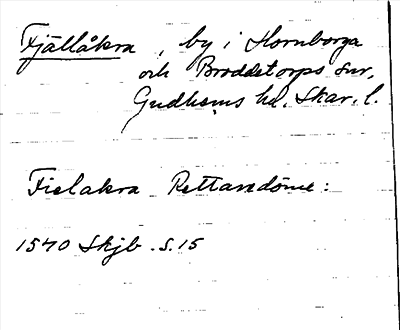 Fjällåkra, by i Hornborga
och Broddetorps snr,
Gudhems hd. Skar. l.
Fielakra Rettaredöme:
1540 Skjb. S. 15